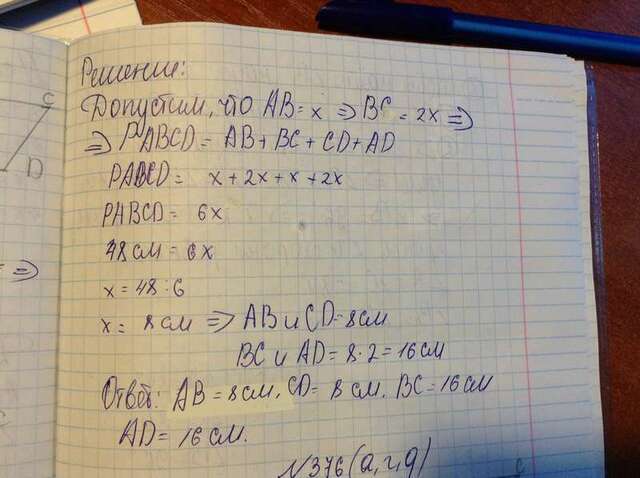 C
D
⇒
Решение:
Допустим, что AB = x ⇒ BC = 2x ⇒
⇒ PABCD = AB + BC + CD + AD
PABCD = x + 2x + x + 2x
PABCD = 6x
48 см = 6x
x = 48 : 6
x = 8 см ⇒ AB и CD = 8 см
BC и AD = 8 · 2 = 16 см
Ответ: AB = 8 см, CD = 8 см, BC = 16 см
AD = 16 см.
N376 (а, г, д)
C